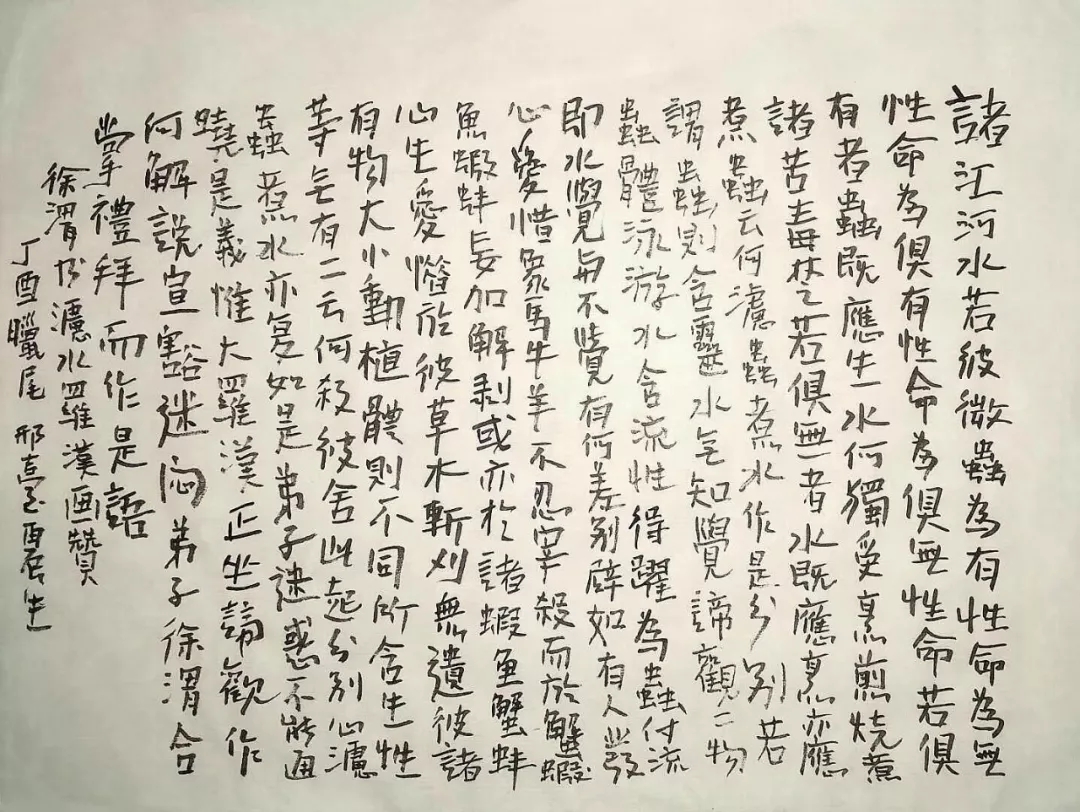 諸江河水若彼微蟲為有性命為無
性命為俱有性命為俱無性命若俱
有者蟲既應生水何獨受烹煎燒煮
諸苦毒焚之若俱無者水既應烹亦應
煮蟲云何濾蟲煮水作是分别若
謂蟲則含靈水乞知覺諦觀二物
蟲體泳游水含流性得躍為蟲付流
即水覺與不覺有何差别辟如有人發
心愛惜象馬牛羊不忍宰殺而於蟹蝦
魚蝦蚌妄加解剥或亦於諸蝦魚蟹蚌
心生愛憐於彼草木斬刈無遺彼諸
有物大小動植體則不同所含生性
等乞有二云何殺彼舍此起分别心濾
蟲煮水亦复如是弟子迷惑不能通
曉是義惟大羅漢正坐諦觀作
何解說宣豁迷悶弟子徐渭合
掌禮拜而作是語
徐渭书濾水羅漢画贊
丁酉臘尾邢